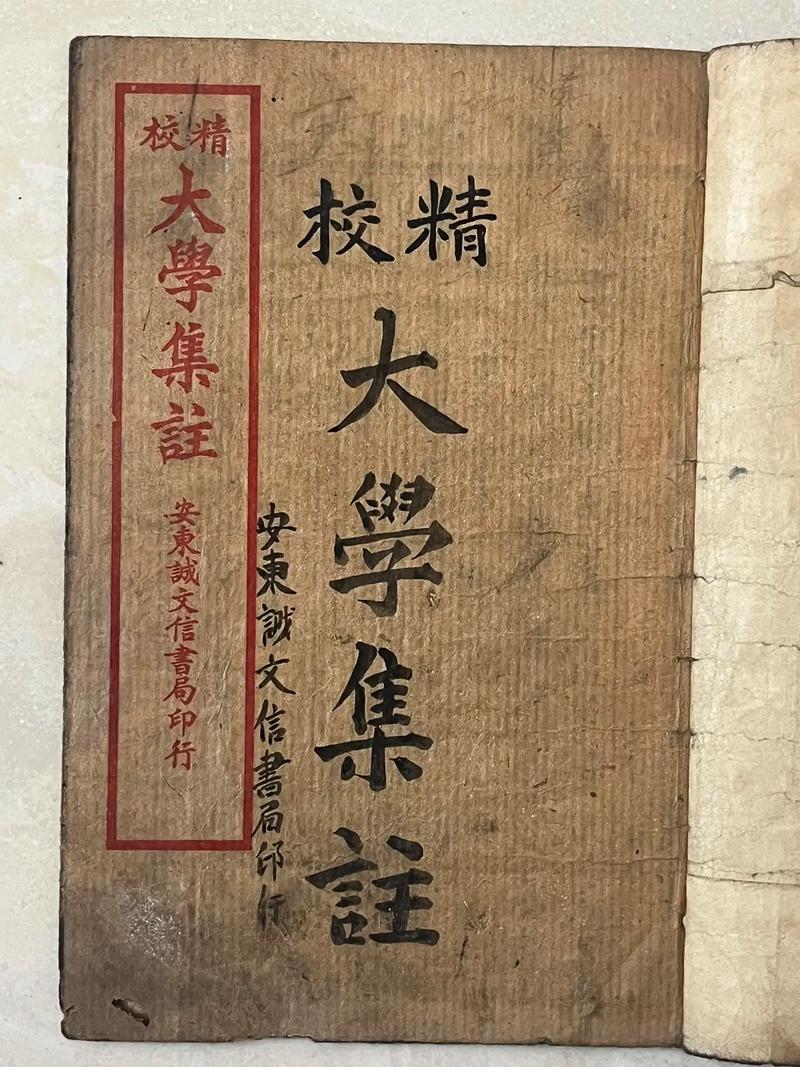 精校
大學集註
安東誠文信書局印行
精校
大學集註
安東誠文信書局印行